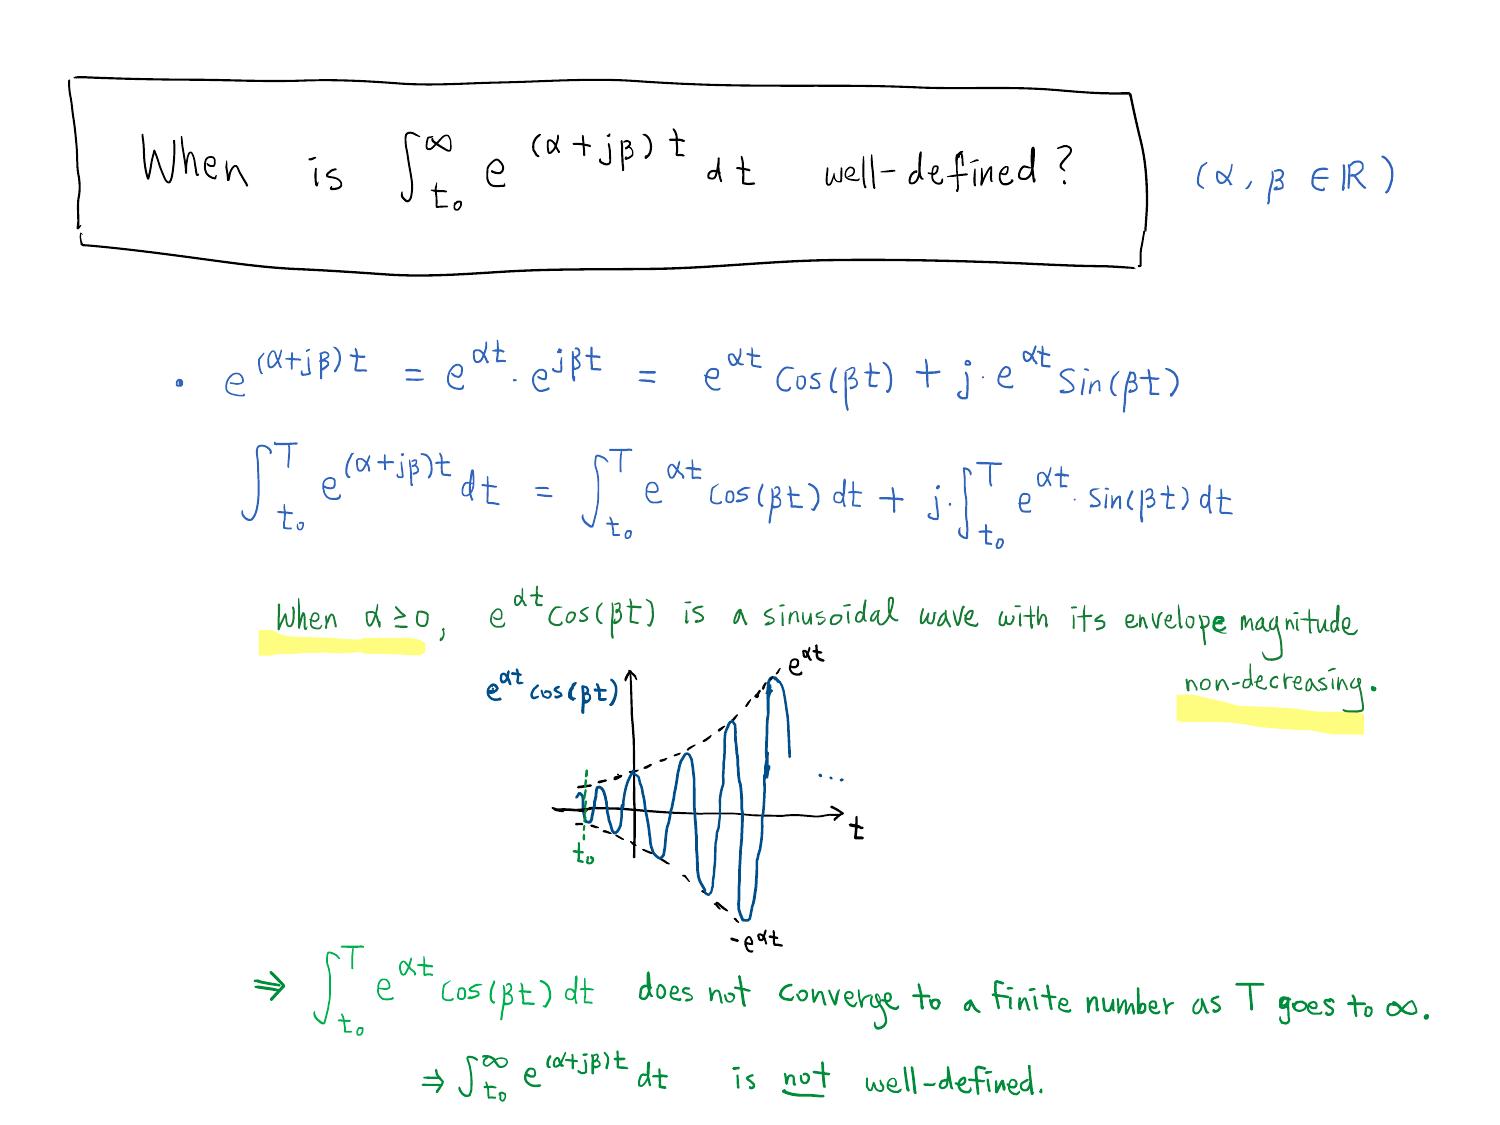 When is ∫_{t₀}^{∞} e^{(α+jβ)t} dt well-defined? (α, β ∈ ℝ)
• e^{(α+jβ)t} = e^{αt} · e^{jβt} = e^{αt} Cos(βt) + j · e^{αt} Sin(βt)
∫_{t₀}^{T} e^{(α+jβ)t} dt = ∫_{t₀}^{T} e^{αt} cos(βt) dt + j · ∫_{t₀}^{T} e^{αt} · sin(βt) dt
When α ≥ 0, e^{αt} cos(βt) is a sinusoidal wave with its envelope magnitude
non-decreasing.
e^{αt}
e^{αt} cos(βt)
...
t
t₀
-e^{αt}
⇒ ∫_{t₀}^{T} e^{αt} cos(βt) dt does not converge to a finite number as T goes to ∞.
⇒ ∫_{t₀}^{∞} e^{(α+jβ)t} dt is not well-defined.